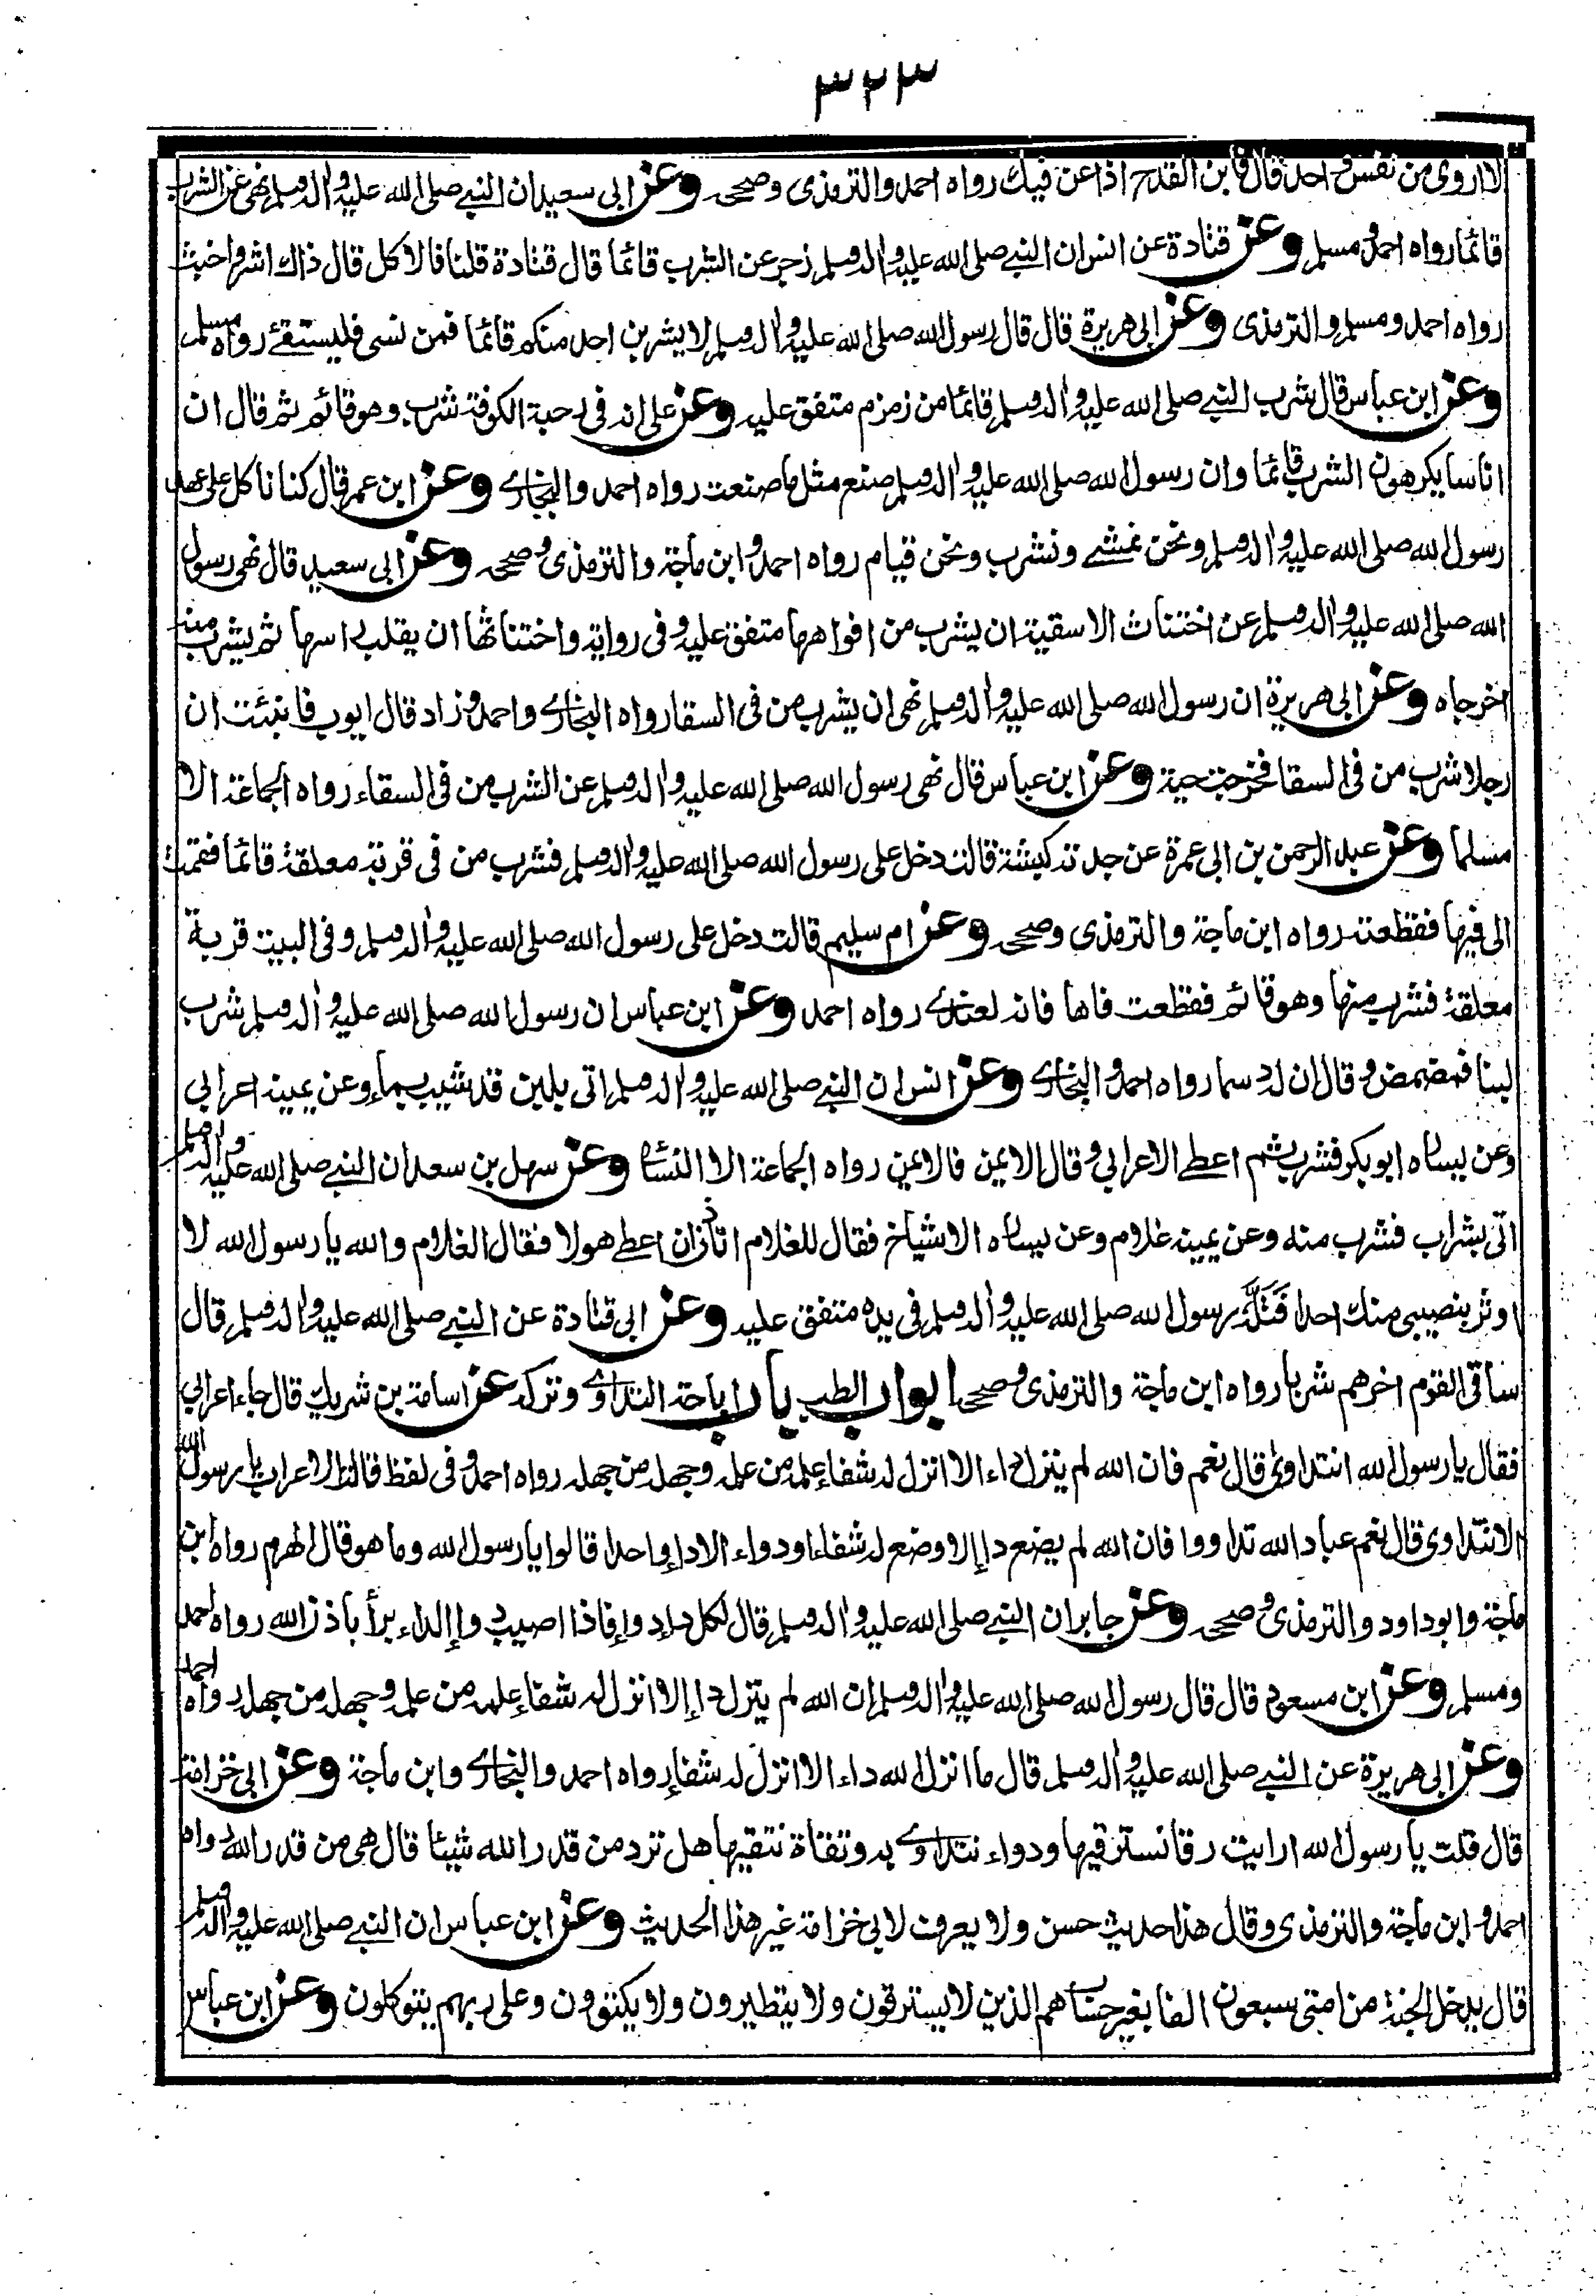 ٣٢٣
لا اروى من نفس واحد قال فابن القدح اذا عن فيك رواه احمد والترمذى وصححه وعن ابى سعيد ان النبي صلى الله عليه واله وسلم نهى عن الشرب
قائما رواه احمد ومسلم وعن قتادة عن انس ان النبي صلى الله عليه واله وسلم زجر عن الشرب قائما قال قتادة قلنا فالاكل قال ذاك اشر واخبث
رواه احمد ومسلم والترمذى وعن ابى هريرة قال قال رسول الله صلى الله عليه واله وسلم لا يشربن احد منكم قائما فمن نسى فليستقئ رواه مسلم
وعن ابن عباس قال شرب النبي صلى الله عليه واله وسلم قائما من زمزم متفق عليه وعن على انه فى رحبة الكوفة شرب وهو قائم ثم قال ان
اناسا يكرهون الشرب قائما وان رسول الله صلى الله عليه واله وسلم صنع مثل ما صنعت رواه احمد والبخارى وعن ابن عمر قال كنا ناكل على عهد
رسول الله صلى الله عليه واله وسلم ونحن نمشى ونشرب ونحن قيام رواه احمد وابن ماجة والترمذى وصححه وعن ابى سعيد قال نهى رسول
الله صلى الله عليه واله وسلم عن اختناث الاسقية ان يشرب من افواهها متفق عليه وفى رواية واختناثها ان يقلب راسها ثم يشرب منه
اخرجاه وعن ابى هريرة ان رسول الله صلى الله عليه واله وسلم نهى ان يشرب من فى السقا رواه البخارى واحمد وزاد قال ايوب فانبئت ان
رجلا شرب من فى السقا فخرجت حية وعن ابن عباس قال نهى رسول الله صلى الله عليه واله وسلم عن الشرب من فى السقاء رواه الجماعة الا
مسلما وعن عبد الرحمن بن ابى عمرة عن جدته كبشة قالت دخل على رسول الله صلى الله عليه واله وسلم فشرب من فى قربة معلقة قائما فقمت
الى فيها فقطعته رواه ابن ماجة والترمذى وصححه وعن ام سليم قالت دخل على رسول الله صلى الله عليه واله وسلم وفى البيت قربة
معلقة فشرب منها وهو قائم فقطعت فاها فانه لعندى رواه احمد وعن ابن عباس ان رسول الله صلى الله عليه واله وسلم شرب
لبنا فمضمض وقال ان له دسما رواه احمد والبخارى وعن انس ان النبي صلى الله عليه واله وسلم اتى بلبن قد شيب بماء وعن يمينه اعرابي
وعن يساره ابو بكر فشرب ثم اعطى الاعرابي وقال الايمن فالايمن رواه الجماعة الا النسائ وعن سهل بن سعد ان النبي صلى الله عليه واله وسلم
اتى بشراب فشرب منه وعن يمينه غلام وعن يساره الاشياخ فقال للغلام اتأذن ان اعطى هولا فقال الغلام والله يا رسول الله لا
اوثر بنصيبى منك احدا فَتَلَّه رسول الله صلى الله عليه واله وسلم فى يده متفق عليه وعن ابى قتادة عن النبي صلى الله عليه واله وسلم قال
ساقى القوم اخرهم شربا رواه ابن ماجة والترمذى وصححه ابواب الطب باب اباحة التداوى وتركه عن اسامة بن شريك قال جاء اعرابي
فقال يا رسول الله انتداوى قال نعم فان الله لم ينزل داء الا انزل له شفاء علمه من علمه وجهله من جهله رواه احمد وفى لفظ قالت الاعراب يا رسول الله
الا نتداوى قال نعم عباد الله تداووا فان الله لم يضع داء الا وضع له شفاء او دواء الا داء واحدا قالوا يا رسول الله وما هو قال الهرم رواه ابن
ماجة وابو داود والترمذى وصححه وعن جابر ان النبي صلى الله عليه واله وسلم قال لكل داء دواء فاذا اصيب دواء الداء برأ باذن الله رواه احمد
ومسلم وعن ابن مسعود قال قال رسول الله صلى الله عليه واله وسلم ان الله لم ينزل داء الا انزل له شفاء علمه من علمه وجهله من جهله رواه احمد
وعن ابى هريرة عن النبي صلى الله عليه واله وسلم قال ما انزل الله داء الا انزل له شفاء رواه احمد والبخارى وابن ماجة وعن ابى خزامة
قال قلت يا رسول الله ارايت رقا نسترقيها ودواء نتداوى به وتقاة نتقيها هل ترد من قدر الله شيئا قال هى من قدر الله رواه
احمد وابن ماجة والترمذى وقال هذا حديث حسن ولا يعرف لابى خزامة غير هذا الحديث وعن ابن عباس ان النبي صلى الله عليه واله وسلم
قال يدخل الجنة من امتى سبعون الفا بغير حساب هم الذين لا يسترقون ولا يتطيرون ولا يكتوون وعلى ربهم يتوكلون وعن ابن عباس